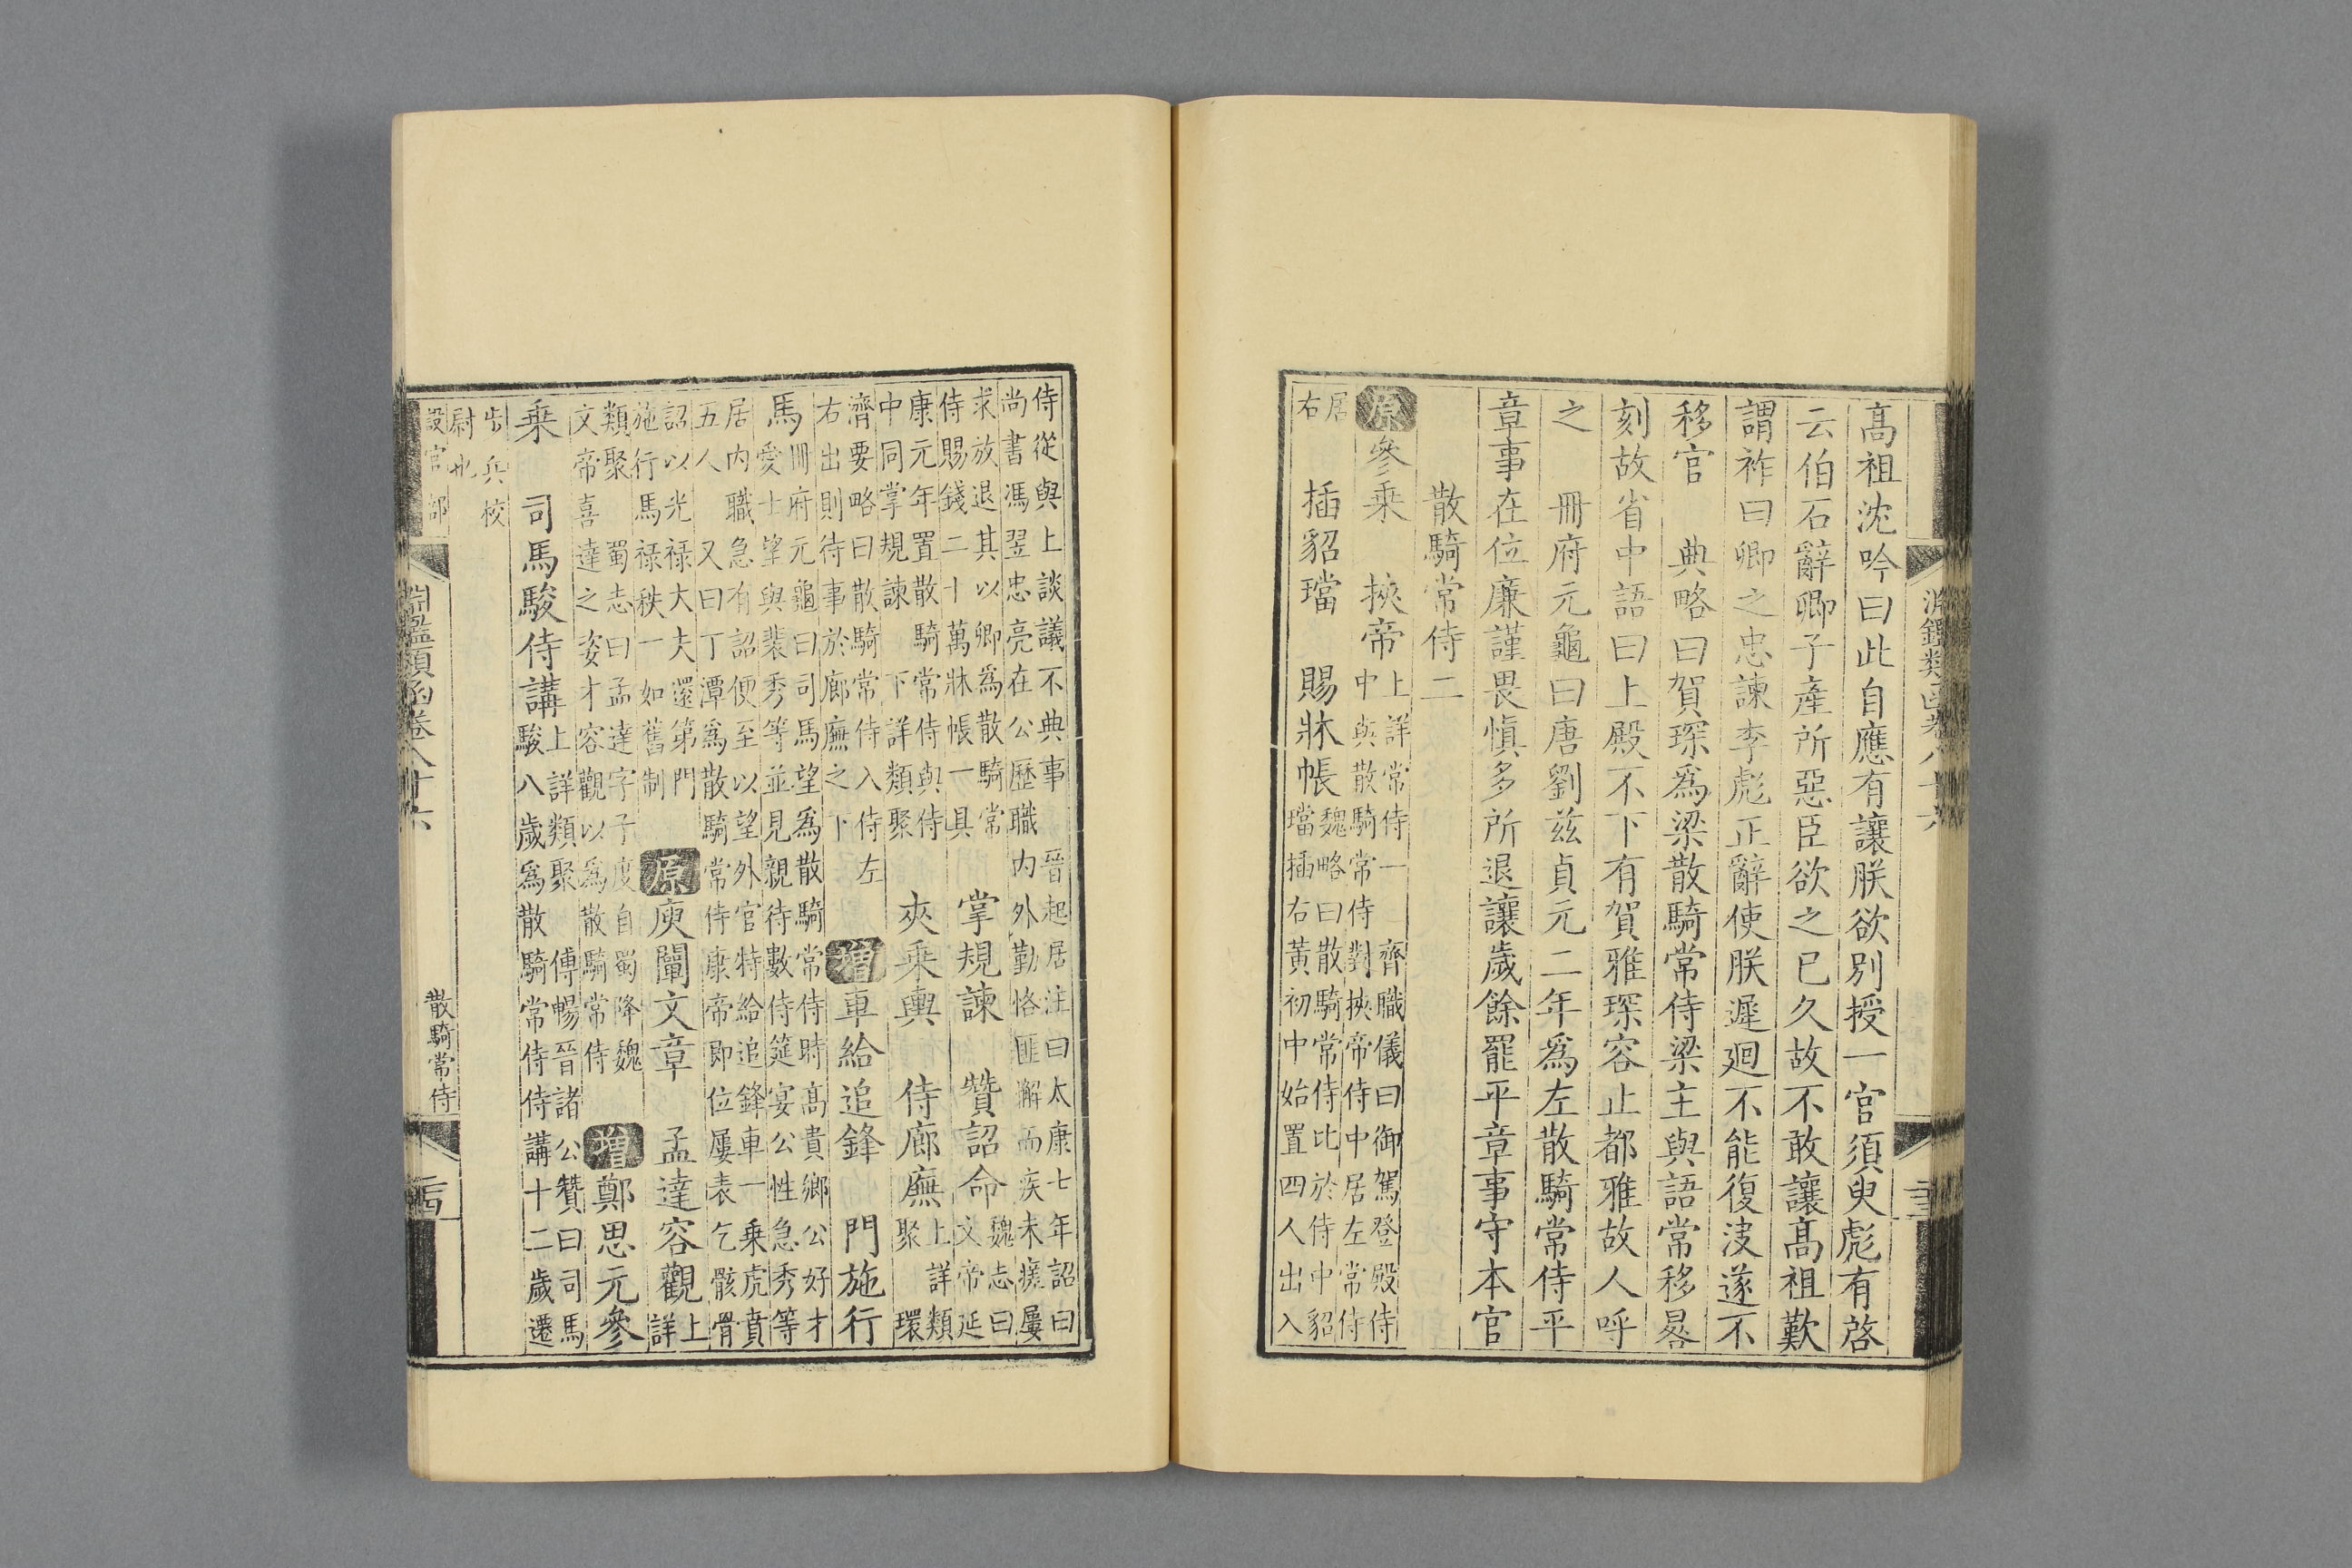 淵鑑類函卷八十六
高祖沈吟曰此自應有讓朕欲別授一官須臾彪有啓
云伯石辭卿子產所惡臣欲之已久故不敢讓高祖歎
謂祚曰卿之忠諫李彪正辭使朕遲迴不能復決遂不
移官 典略曰賀琛爲梁散騎常侍梁主與語常移晷
刻故省中語曰上殿不下有賀雅琛容止都雅故人呼
之 冊府元龜曰唐劉兹貞元二年爲左散騎常侍平
章事在位廉謹畏慎多所退讓歲餘罷平章事守本官
散騎常侍二
原參乘 挾帝上詳常侍一 齊職儀曰御駕登殿侍中與散騎常侍對挾帝侍中居左常侍
居右 插貂璫 賜牀帳魏略曰散騎常侍比於侍中貂璫插右黃初中始置四人出入
侍從與上談議不典事 晉起居注曰太康七年詔曰尚書馮翌忠亮在公歷職內外勤恪匪懈而疾未瘥屢
求放退其以卿爲散騎常侍賜錢二十萬牀帳一具 掌規諫 贊詔命魏志曰文帝延
康元年置散騎常侍與侍中同掌規諫 下詳類聚 夾乘輿 侍廊廡上詳類聚 環
濟要略曰散騎常侍入侍左右出則待事於廊廡之下 增車給追鋒 門施行
馬冊府元龜曰司馬望爲散騎常侍時高貴鄉公好才愛士望與裴秀等並見親待數侍筵宴公性急秀等
居內職急有詔便至以望外官特給追鋒車一乘虎賁五人 又曰丁潭爲散騎常侍康帝即位屢表乞骸骨
詔以光祿大夫還第門施行馬祿秩一如舊制 原庾闡文章 孟達容觀上詳
類聚 蜀志曰孟達字子度自蜀降魏文帝喜達之姿才容觀以爲散騎常侍 增鄭思元參
乘 司馬駿侍講上詳類聚 傅暢晉諸公贊曰司馬駿八歲爲散騎常侍侍講十二歲遷
步兵校尉也
設官部 淵鑑類函卷八十六 散騎常侍